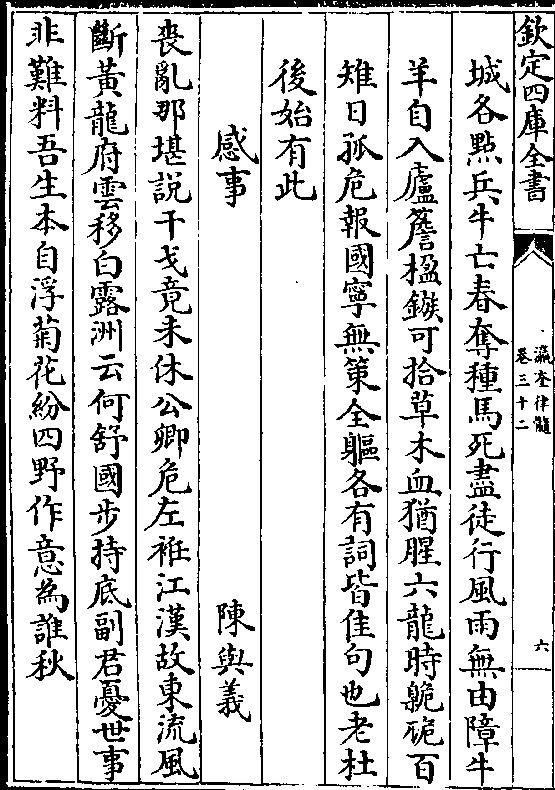 欽定四庫全書
瀛奎律髓
卷三十二
六
城各點兵牛亡春奪種馬死盡徒行風雨無由障牛
羊自入廬簷楹鏃可拾草木血猶腥六龍時軏硊百
雉日孤危報國寧無策全軀各有詞皆佳句也老杜
後始有此
感事
陳與義
喪亂那堪說干戈竟未休公卿危左袵江漢故東流風
斷黃龍府雲移白露洲云何舒國步持底副君憂世事
非難料吾生本自浮菊花紛四野作意為誰秋